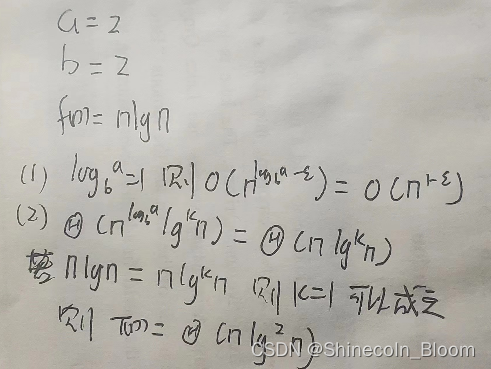 a=2
b=2
f(n)=nlgn
(1) log_b^a=1 则 O(n^{log_b a-ε})=O(n^{1-ε})
(2) Θ(n^{log_b a}lg^k n)=Θ(n lg^k n)
nlgn=nlg^k n 则k=1 可以成立
则 T(n)=Θ(nlg^2 n)
CSDN @Shinecoln_Bloom